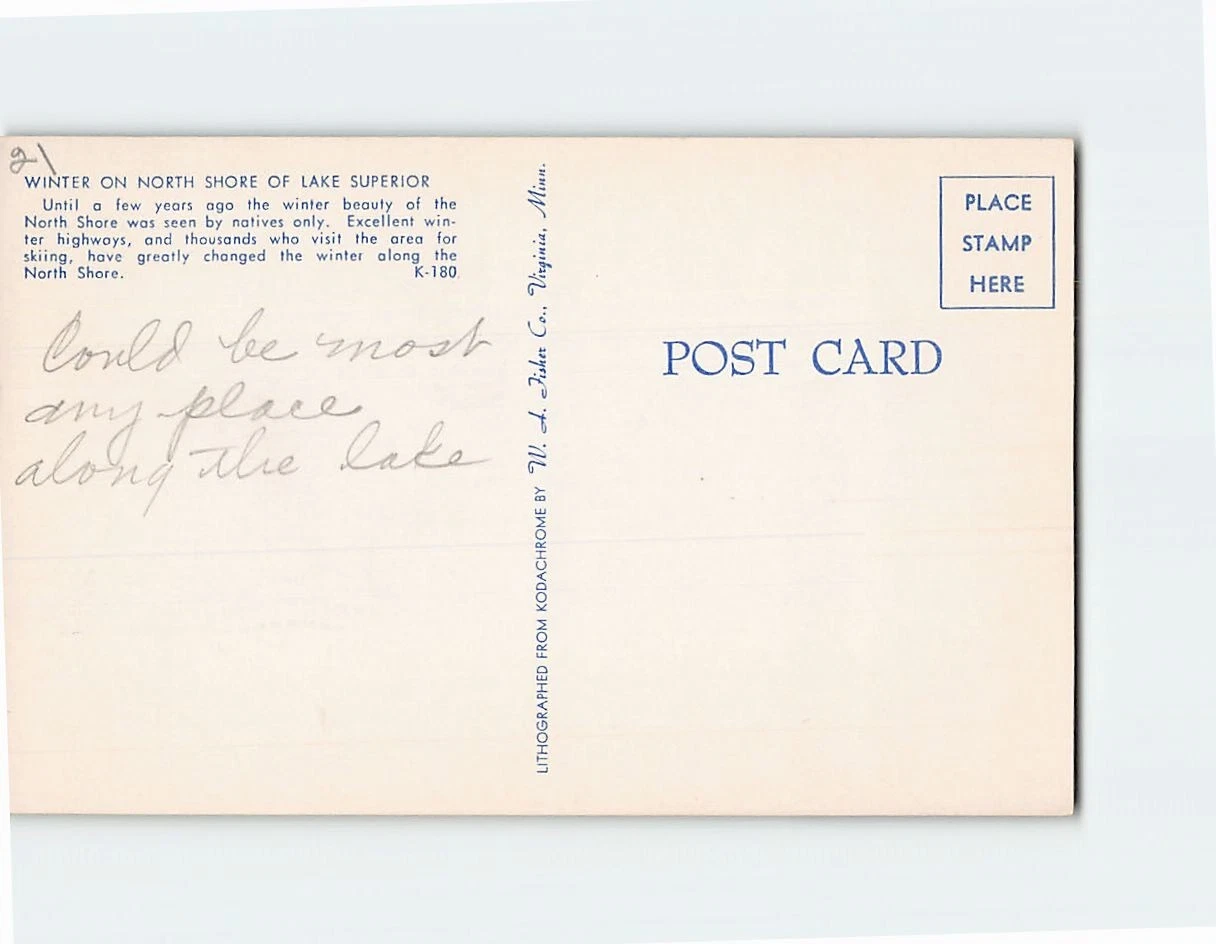 21
WINTER ON NORTH SHORE OF LAKE SUPERIOR
Until a few years ago the winter beauty of the
North Shore was seen by natives only. Excellent win-
ter highways, and thousands who visit the area for
skiing, have greatly changed the winter along the
North Shore. K-180
Could be most
any place
along the lake
LITHOGRAPHED FROM KODACHROME BY W. A. Fisher Co., Virginia, Minn.
PLACE
STAMP
HERE
POST CARD